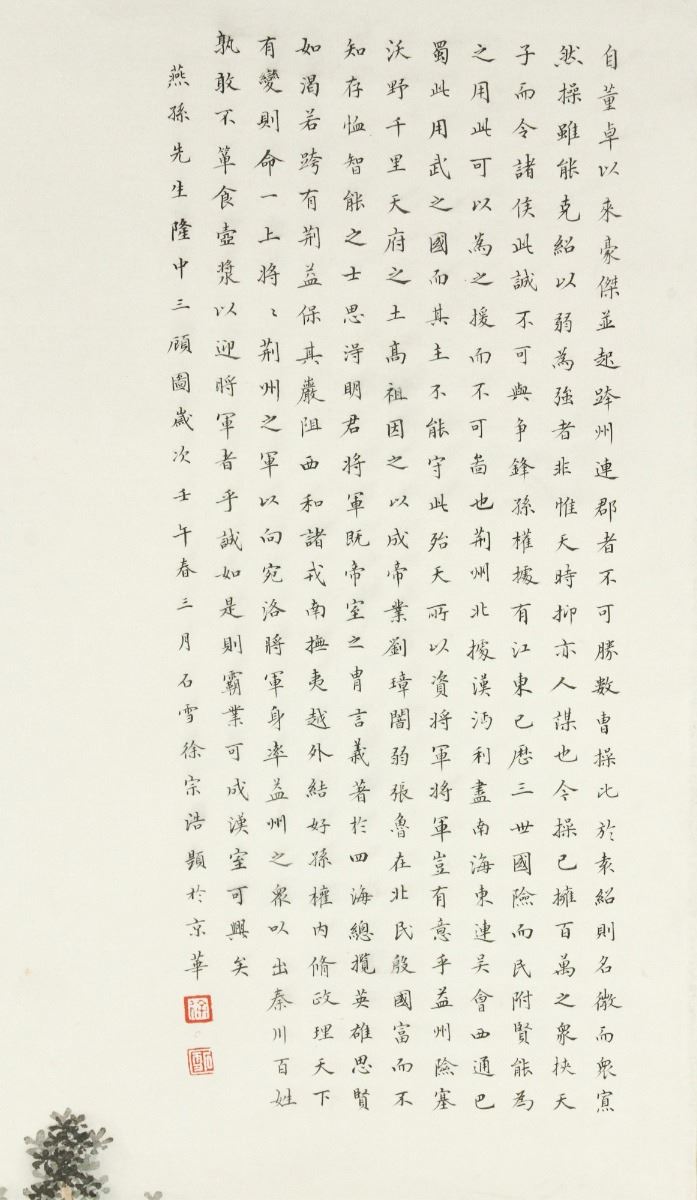 自董卓以來豪傑並起跨州連郡者不可勝數曹操比於袁紹則名微而眾寡
然操雖能克紹以弱為強者非惟天時抑亦人謀也今操已擁百萬之眾挾天
子而令諸侯此誠不可與爭鋒孫權據有江東已歷三世國險而民附賢能為
之用此可以為之援而不可啚也荊州北據漢沔利盡南海東連吳會西通巴
蜀此用武之國而其主不能守此殆天所以資將軍將軍豈有意乎益州險塞
沃野千里天府之土高祖因之以成帝業劉璋闇弱張魯在北民殷國富而不
知存恤智能之士思得明君將軍既帝室之胄言義著於四海總攬英雄思賢
如渴若跨有荊益保其巖阻西和諸戎南撫夷越外結好孫權內脩政理天下
有變則命一上將〻荊州之軍以向宛洛將軍身率益州之眾以出秦川百姓
孰敢不簞食壺漿以迎將軍者乎誠如是則霸業可成漢室可興矣
燕孫先生隆中三顧圖歲次壬午春三月石雪徐宗浩題於京華
徐